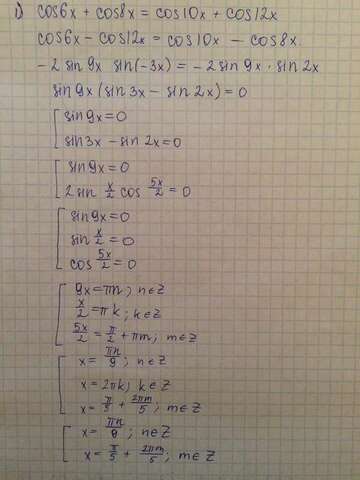 1) cos6x + cos8x = cos10x + cos12x
cos6x − cos12x = cos10x − cos8x
−2 sin 9x sin(−3x) = −2 sin 9x · sin 2x
sin 9x (sin 3x − sin 2x) = 0
[ sin 9x = 0
sin 3x − sin 2x = 0
[ sin 9x = 0
2 sin x/2 cos 5x/2 = 0
[ sin 9x = 0
sin x/2 = 0
cos 5x/2 = 0
[ 9x = πn; n∈Z
x/2 = πk; k∈Z
5x/2 = π/2 + πm; m∈Z
[ x = πn/9; n∈Z
x = 2πk; k∈Z
x = π/5 + 2πm/5; m∈Z
[ x = πn/9; n∈Z
x = π/5 + 2πm/5; m∈Z